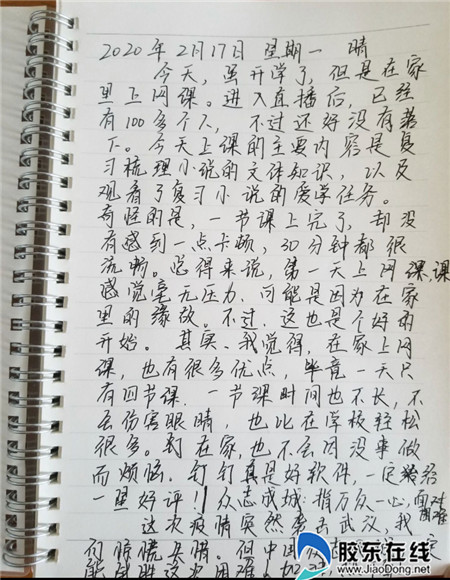 2020年2月17日 星期一 晴
今天,虽开学了,但是在家
里上网课。进入直播后,已经
有100多个人,不过还好没有落
下。今天上课的主要内容是复
习梳理小说的文体知识,以及
观看了复习小说的爱学任务。
奇怪的是,一节课上完了,却没
有感到一点卡顿,30分钟都很
流畅。总得来说,第一天上网课,课
感觉毫无压力,可能是因为在家
里的缘故。不过,这也是个好的
开始。其实,我觉得,在家上网
课,也有很多优点,毕竟一天只
有四节课,一节课时间也不长,不
会伤害眼睛,也比在学校轻松
很多。 在家,也不会因没事做
而烦恼。钉钉真是好软件,一定 给
一星好评!众志成城:指万众一心,面对困难
这次疫情突然袭击武汉,我
们 。但中国
胶东在线
www.JiaoDong.net